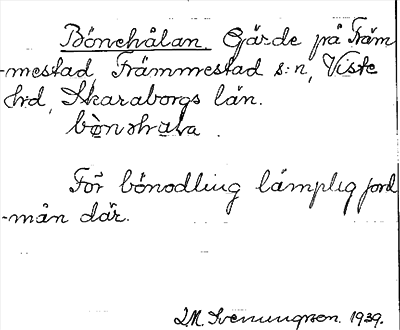 Bönehålan. Gärde på Främ
-mestad, Främmestad s:n, Viste
hrd, Skaraborgs län.
För bönodling lämplig jord
-mån där.
I.M. Svenungsson. 1939.